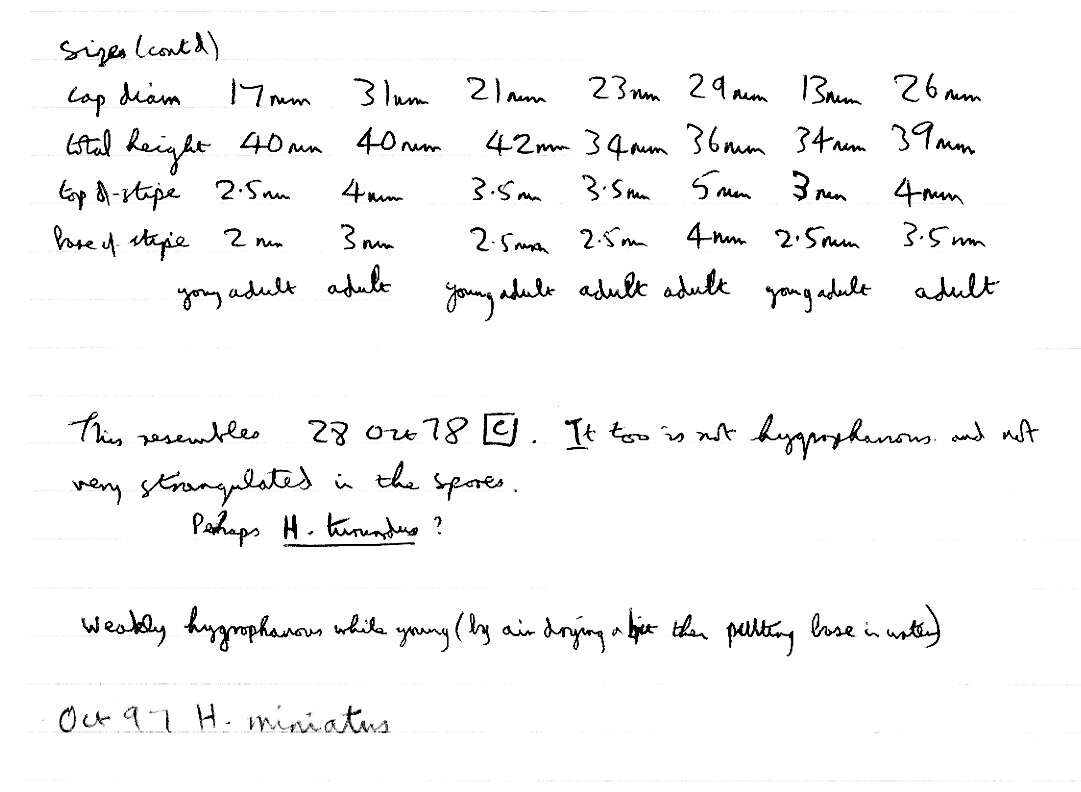 Sizes (contd)
cap diam 17mm 31mm 21mm 23mm 29mm 13mm 26mm
total height 40mm 40mm 42mm 34mm 36mm 34mm 39mm
top of stipe 2.5mm 4mm 3.5mm 3.5mm 5mm 3mm 4mm
base of stipe 2mm 3mm 2.5mm 2.5mm 4mm 2.5mm 3.5mm
young adult adult young adult adult adult young adult adult
This resembles 28 Oct 78 C. It too is not hygrophanous and not
very strangulated in the spores.
Perhaps H. turundus?
Weakly hygrophanous while young (by air drying a bit then putting base in water)
Oct 97 H. miniatus